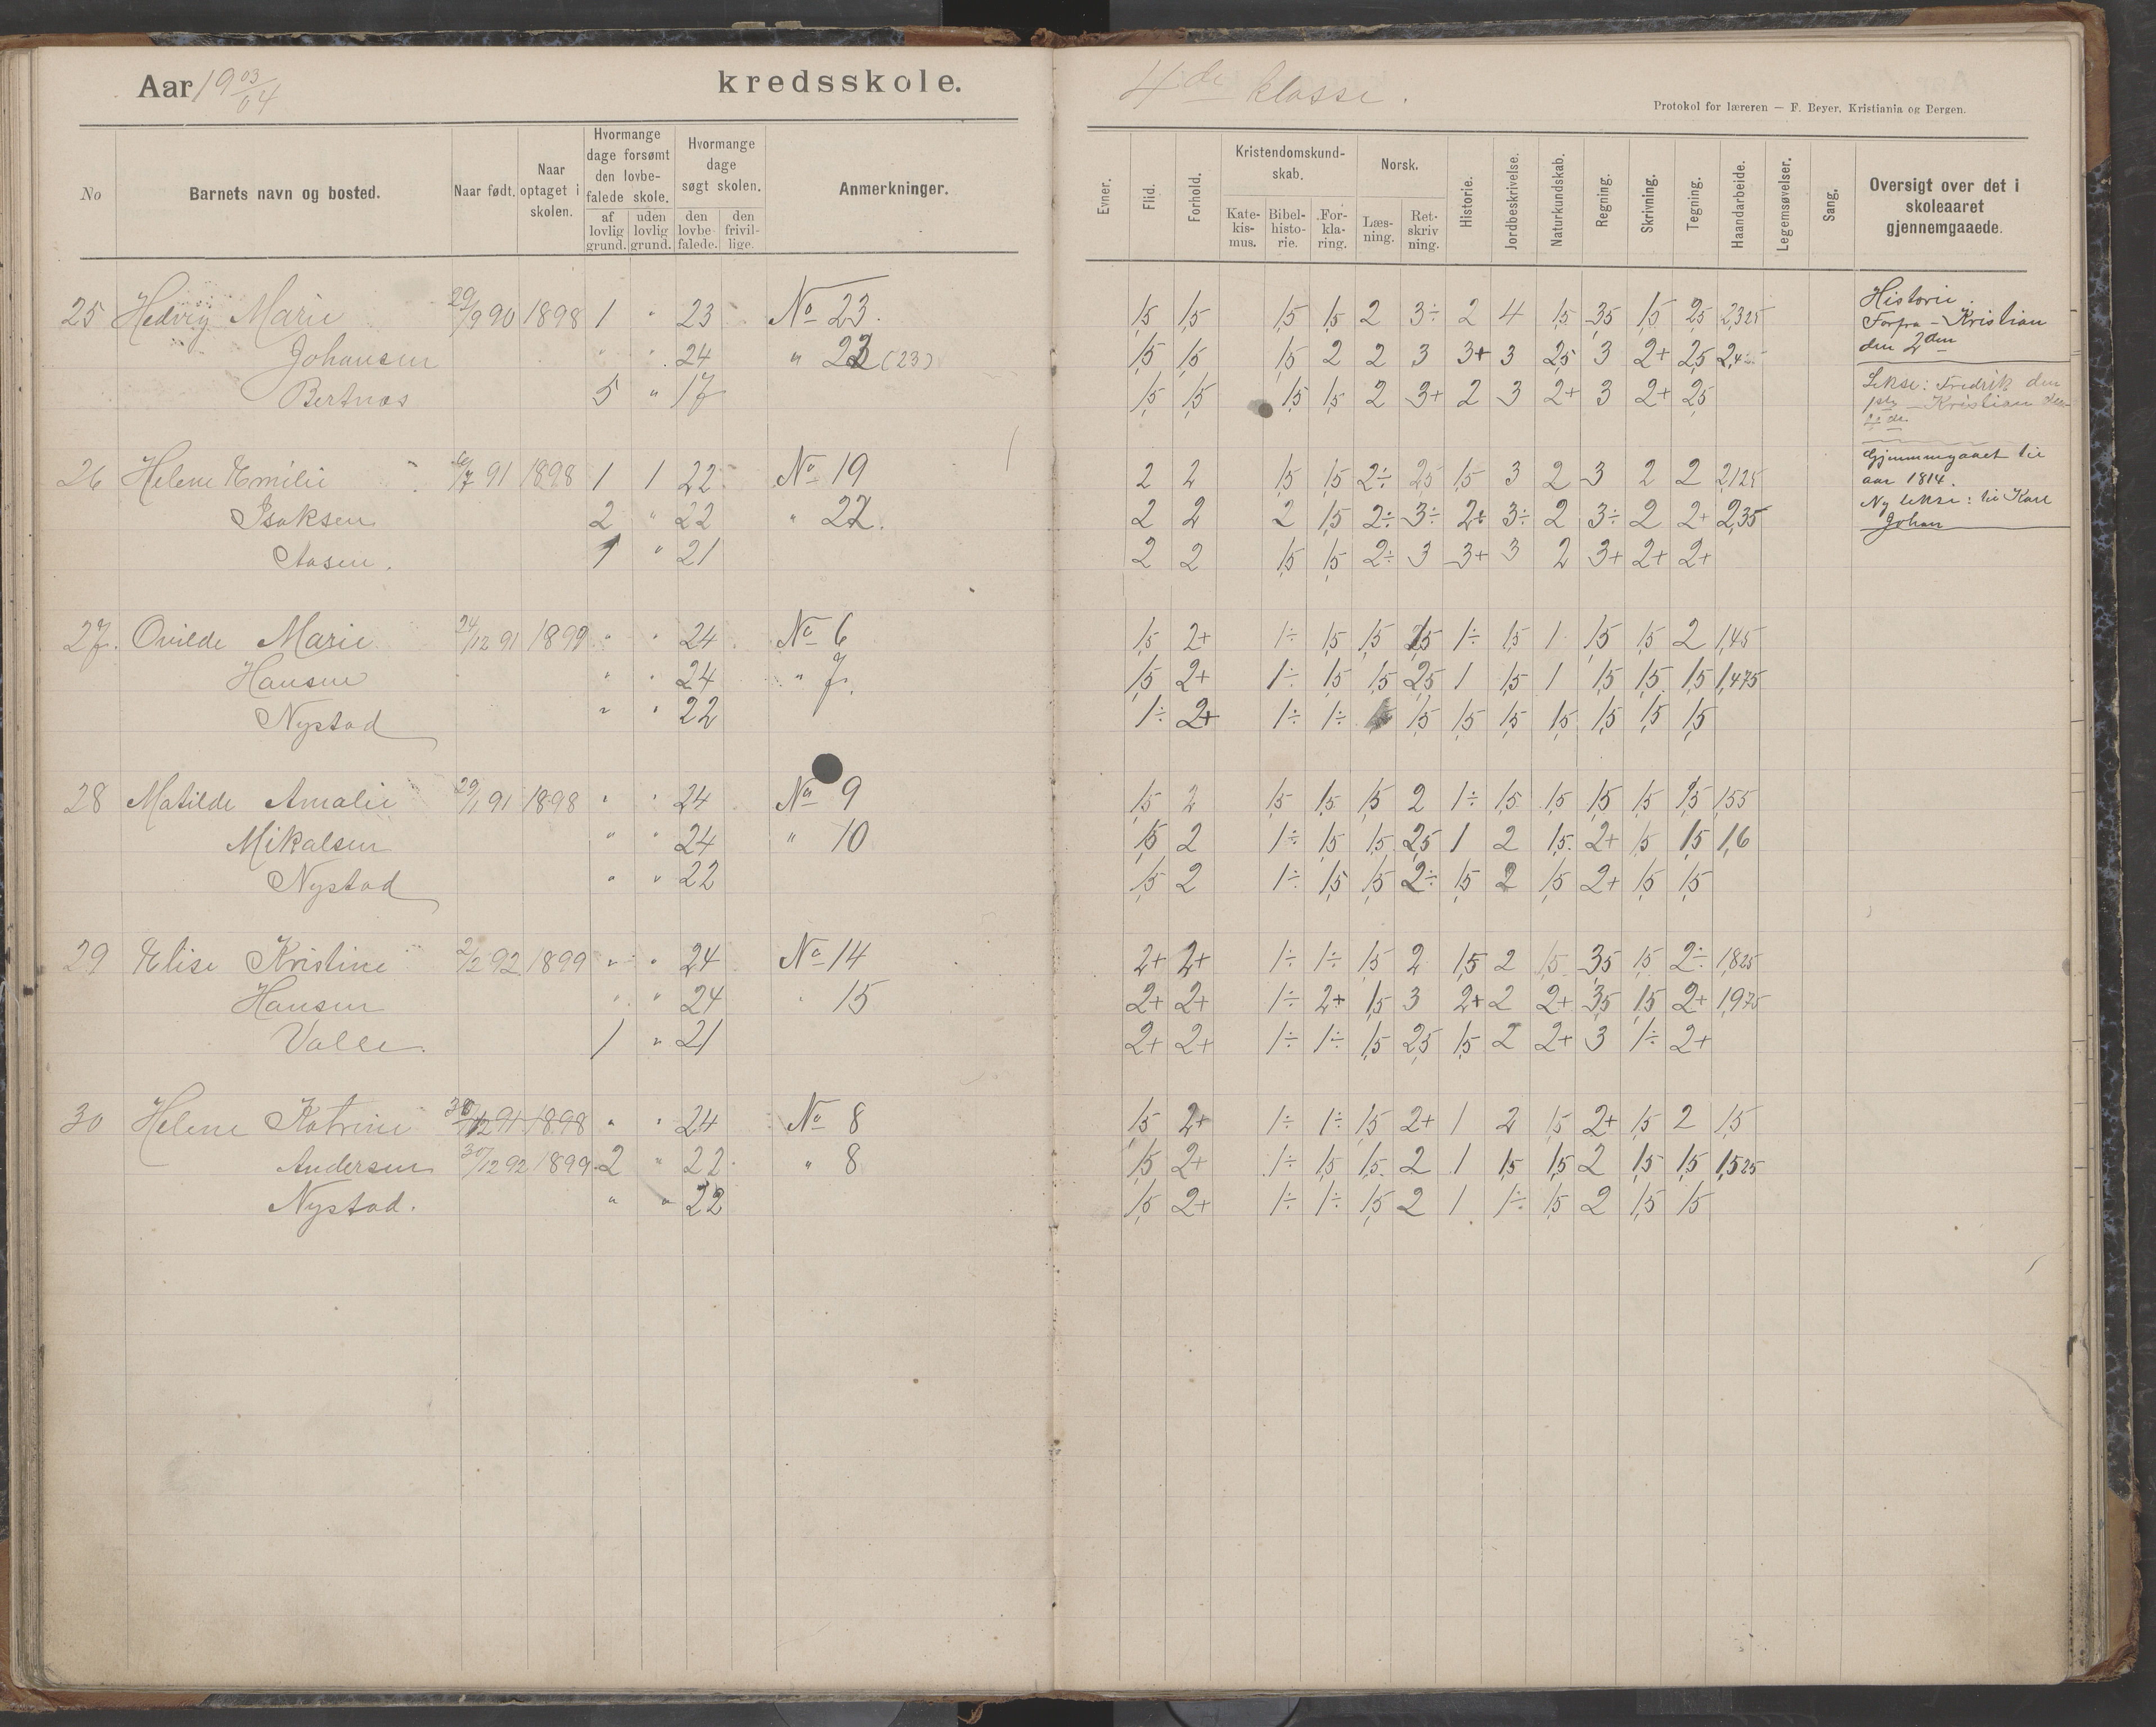 Aar 19 03/04 kredsskole. 4de klasse.
Protokol for læreren — F. Beyer, Kristiania og Bergen.
No Barnets navn og bosted. Naar født. Naar optaget i skolen. Hvormange dage forsømt den lovbefalede skole. af lovlig grund. uden lovlig grund. Hvormange dage søgt skolen. den lovbefalede. den frivillige. Anmerkninger. Evner. Flid. Forhold. Kristendomskundskab. Katekismus. Bibelhistorie. Forklaring. Norsk. Læsning. Retskrivning. Historie. Jordbeskrivelse. Naturkundskab. Regning. Skrivning. Tegning. Haandarbeide. Legemsøvelser. Sang. Oversigt over det i skoleaaret gjennemgaaede.
25 Hedvig Marie 29/9 90 1898 1 " 23 No 23. 1,5 1,5 1,5 1,5 2 3÷ 2 4 1,5 3,5 1,5 2,5 2,325
Johansen " " 24 " 22 (23) 1,5 1,5 1,5 2 2 3 3+ 3 2,5 3 2+ 2,5
Bertnes 5 " 17 1,5 1,5 1,5 1,5 2 3+ 2 3 2+ 3 2+ 2,5
26 Helene Emilie 91 1898 1 1 22 No 19 2 2 1,5 1,5 2÷ 2,5 1,5 3 2 3 2 2 2,125
Isaksen 2 " 22 " 22. 2 2 2 1,5 2÷ 3÷ 2÷ 3÷ 2 3÷ 2 2+ 2,35
Aasen. 1 " 21 2 2 1,5 1,5 2÷ 3 3+ 3 2 3+ 2+ 2+
27. Ovilde Marie 24/12 91 1899 " " 24 No 6 1,5 2+ 1÷ 1,5 1,5 1,5 1÷ 1,5 1 1,5 1,5 2 1,45
Hansen " " 24 " 7. 1,5 2+ 1÷ 1,5 1,5 2,5 1 1,5 1 1,5 1,5 1,5 1,475
Nystad " " 22 1÷ 2+ 1÷ 1÷ 1,5 1,5 1,5 1,5 1,5 1,5 1,5
28 Matilde Amalie 29/1 91 1898 " " 24 No 9 1,5 2 1,5 1,5 1,5 2 1÷ 1,5 1,5 1,5 1,5 1,5 1,55
Mikalsen " " 24 " 10 1,5 2 1÷ 1,5 1,5 2,5 1 2 1,5 2+ 1,5 1,5 1,6
Nystad " " 22 1,5 2 1÷ 1,5 1,5 2÷ 1,5 2 1,5 2+ 1,5 1,5
29 Elise Kristine 2/2 92 1899 " " 24 No 14 2+ 2+ 1÷ 1÷ 1,5 2 1,5 2 1,5 3,5 1,5 2÷ 1,825
Hansen " " 24 " 15 2+ 2+ 1÷ 2+ 1,5 3 2+ 2 2+ 3,5 1,5 2+ 1,975
Valle. 1 " 21 2+ 2+ 1÷ 1÷ 1,5 2,5 1,5 2 2+ 3 1÷ 2+
30 Helene Katrine 30/12 91 1898 " " 24 No 8 1,5 2+ 1÷ 1÷ 1,5 2+ 1 2 1,5 2+ 1,5 2 1,5
Andersen 30/12 92 1899 2 " 22 " 8 1,5 2+ 1÷ 1,5 1,5 2 1 1,5 1,5 2 1,5 1,5 1,525
Nystad. " " 22 1,5 2+ 1÷ 1÷ 1,5 2 1 1÷ 1,5 2 1,5 1,5
Historie.
Forfra – Kristian
den 2den
Lekse: Fredrik den
1ste – Kristian den
Gjennemgaaet til
aar 1814.
Ny lekse: til Karl
Johan